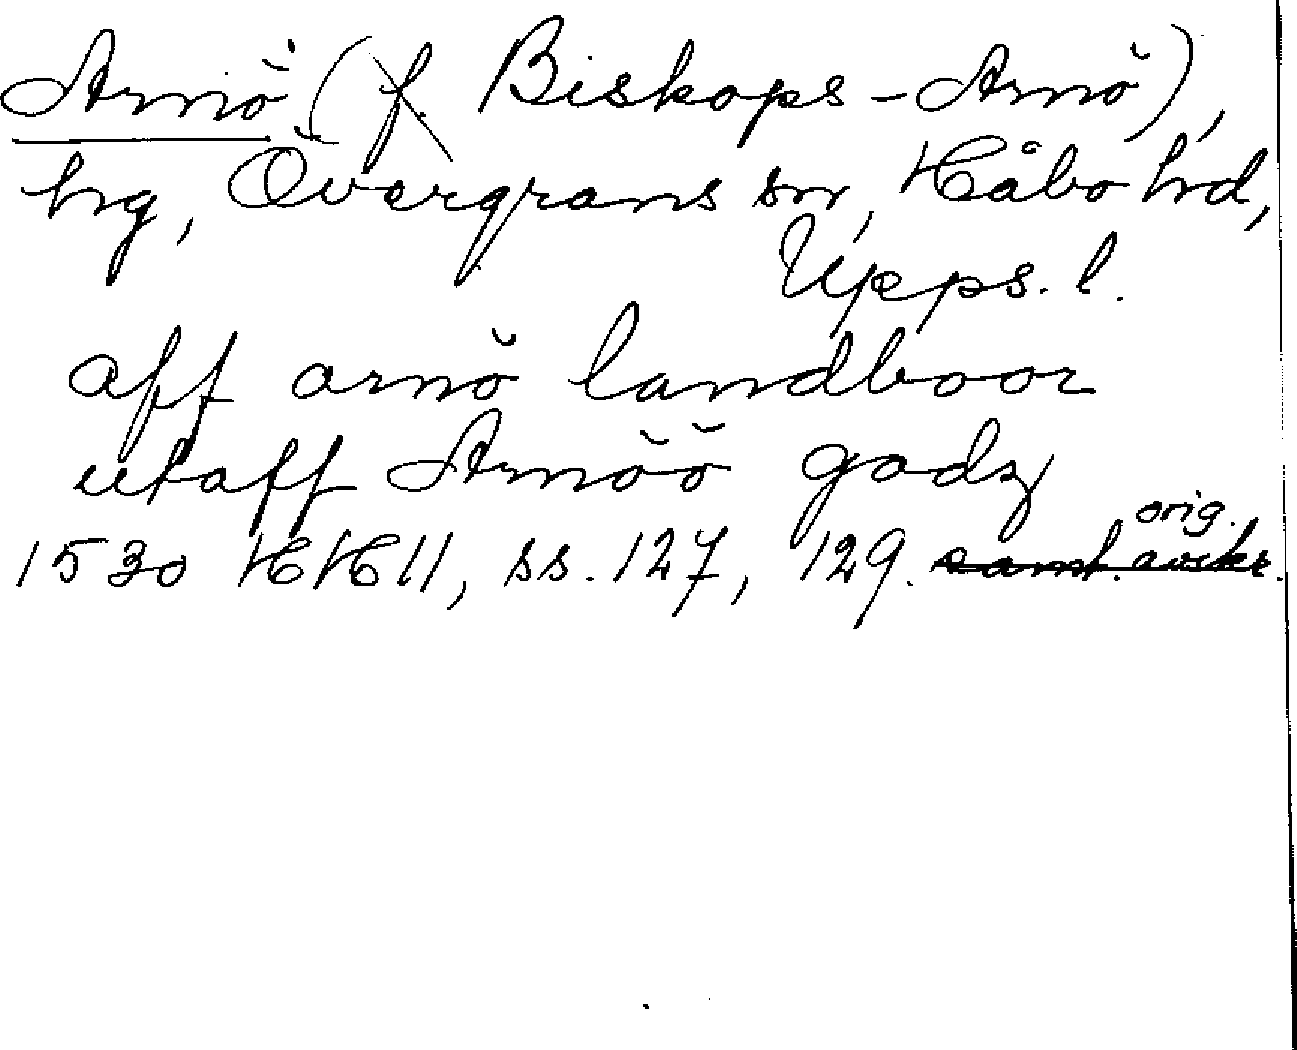 Arnö (f. Biskops-Arnö),
hg, Övergrans sn, Håbo hd,
Upps. l.
aff arnö landboor
utaff Arnöö godz
orig.
1530 HH 11, ss. 127, 129. samt. avskr.